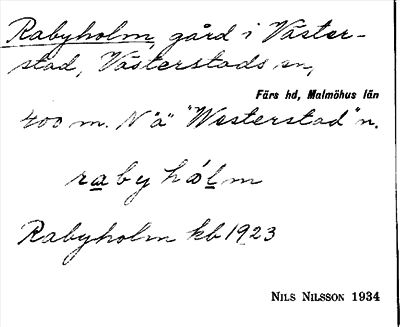 Rabyholm, gård i Väster-
stad, Västerstads sn,
Färs hd, Malmöhus län
400 m. N ä "Westerstad" n.
rabyhålm
Rabyholm kb 1923
NILS NILSSON 1934